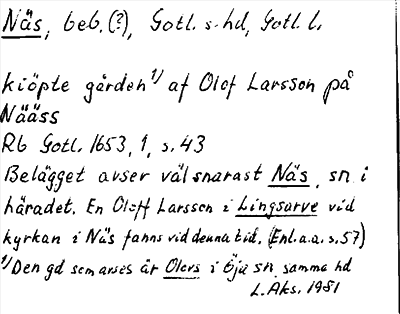 Näs, beb.(?), Gotl. s. hd, Gotl. l.
kiöpte gården¹⁾ af Olof Larsson på
Nääss
Rb Gotl. 1653, 1, s. 43
Belägget avser väl snarast Näs, sn i
häradet. En Oloff Larsson i Lingsarve vid
kyrkan i Näs fanns vid denna tid. (Enl. a.a. s. 57)
¹⁾Den gd som avses är Olevs i Öja sn, samma hd
L. Aks. 1981